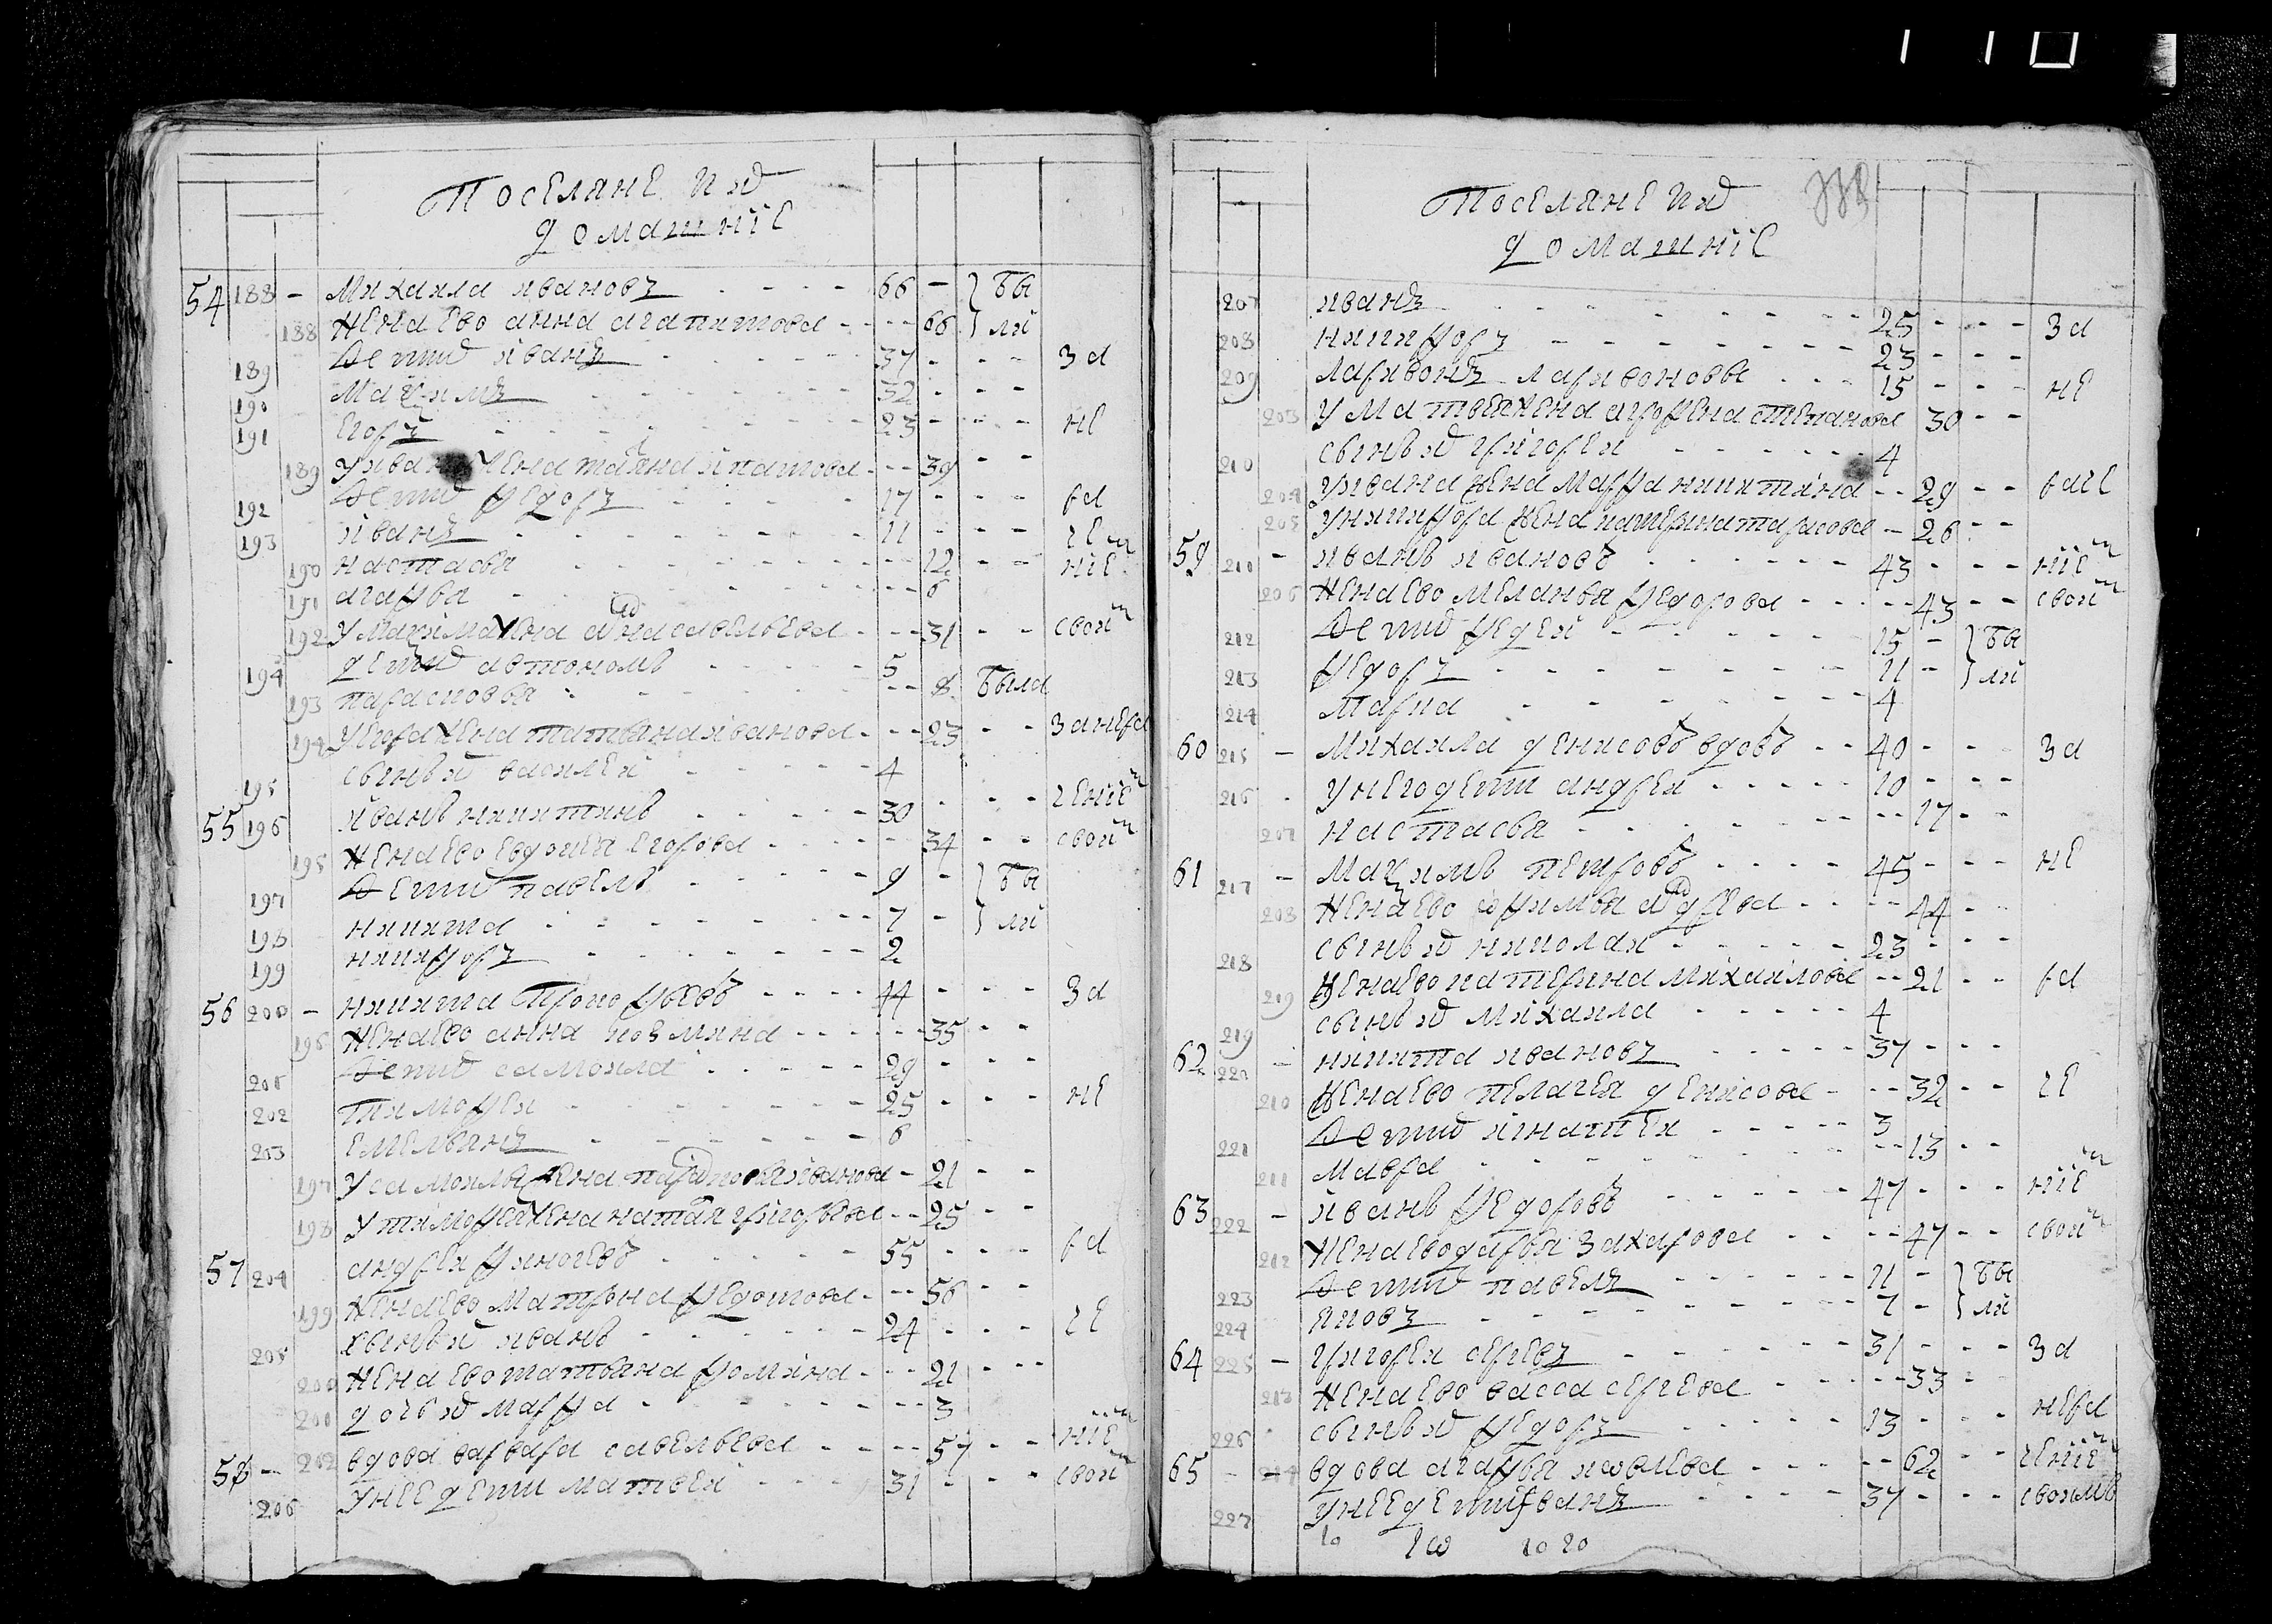 Поселяне ихъ
домашнїе
54 188 - Михаила ивановъ 66 - } бы
188 жена ево анна агапитова 66 } ли
189 дети ихъ иванъ 37 за
190 Максимъ 32
191 егоръ 23 не
189 у ивана жена татиана ипатова 39
192 дети ихъ федоръ 17 ра
193 иванъ 11 че
190 настасья 12 нїе
191 агафья 6
192 у Максима жена анна савельева 31 свои
194 дети ихъ автономъ 5
193 парасковья 8 была
194 у егора жена татьяна иванова 23 занера
195 сынъ их василеи 4
55 196 иванъ никитинъ 30 ченїе
195 жена ево евдокея егорова 34 свои
197 дети ихъ павелъ 9 - } бы
198 никита 7 - } ли
199 никифоръ 2
56 200 - никита Прокофьевъ 44 за
196 жена ево анна козмина 35
201 дети ихъ самоила 29
202 тимофеи 25 не
203 емельянъ 6
197 у самоилы жена парасковья иванова 21
198 у тимофея жена наталя григорьева 25
57 204 андреи финогевъ 55 ра
199 жена ево матрона федотова 56
205 сынъ ихъ иванъ 24 че
200 жена ево татьяна фомина 21
200 дочь их марфа 3
58 - 202 вдова варвара савельева 57 нїе
206 у нее дети матвеи 31 свои
Поселяне ихъ
домашнїе
207 иванъ 25 за
208 никифоръ 23
209 ларивонъ ларивоновы 15 не
203 у матвея жена аграфена степанова 30
210 сынъ их григореи 4
204 у ивана жена марфа никитина 29 раче
205 у никифора жена катерина тарасова 26
59 210 - иванъ ивановъ 43 нїе
206 жена ево меланья федорова 43 свои
212 дети ихъ федеи 15 - } бы
213 федоръ 11 - } ли
214 марка 4
60 215 - Михаила денисовъ вдовъ 40 за
216 у него дети андреи 10
207 настасья 17
61 217 - Максимъ петровъ 45 не
208 жена ево афимья андреева 44
218 сынъ их николаи 23
219 жена ево катерина михаилова 21 ра
219 сынъ их михаила 4
62 220 - никита ивановъ 37
210 жена ево пелагея денисова 32 че
221 дети ихъ игнатеи 3
211 мавра 13
63 222 - иванъ федоровъ 47 нїе
212 жена ево дарья захарова 47 свои
223 дети ихъ павелъ 11 - } бы
224 яковъ 7 - } ли
64 225 - григореи сергевъ 31 за
213 жена ево васса сергева 33
226 сынъ их федоръ 13 нера
65 - 214 вдова агафья иовлева 62 ченїе
227 у нее дети иванъ 37 своимъ